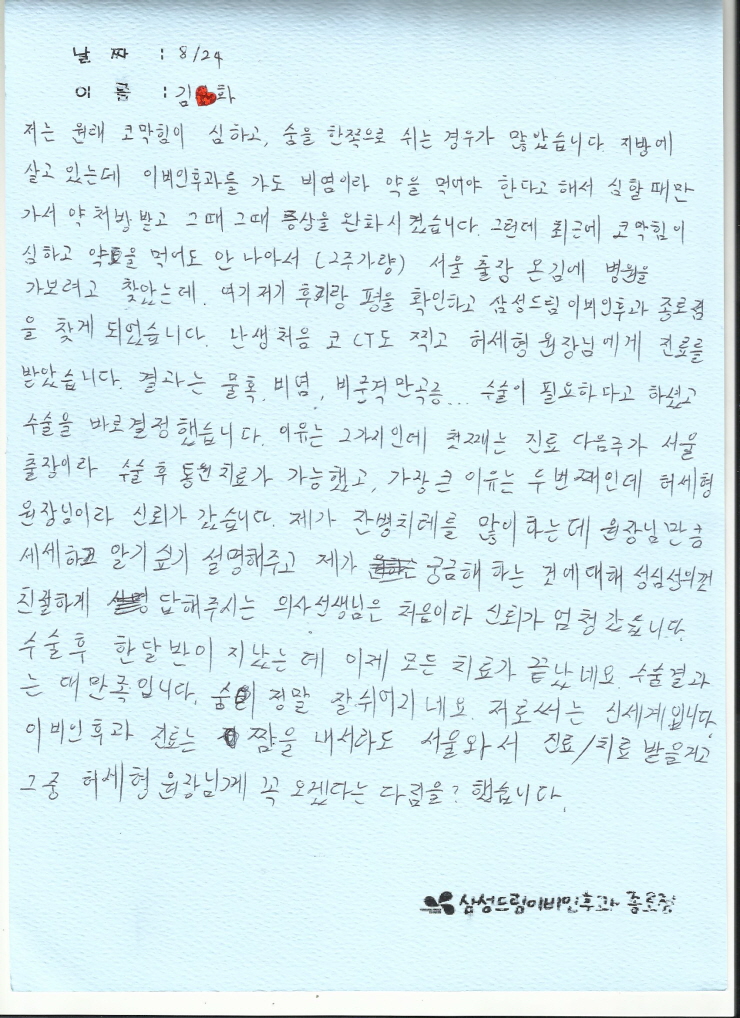 날 짜 : 8/24
이 름 : 김 화
저는 원래 코막힘이 심하고, 숨을 한쪽으로 쉬는 경우가 많았습니다. 지방에
살고 있는데 이비인후과를 가도 비염이라 약을 먹어야 한다고 해서 심할 때만
가서 약 처방 받고 그때 그때 증상을 완화시켰습니다. 그런데 최근에 코막힘이
심하고 약을 먹어도 안 나아서 (2주가량) 서울 출장 온김에 병원을
가보려고 찾았는데, 여기저기 후기랑 평을 확인하고 삼성드림이비인후과 종로점
을 찾게 되었습니다. 난생처음 코 CT도 찍고 허세형 원장님에게 진료를
받았습니다. 결과는 물혹, 비염, 비중격만곡증... 수술이 필요하다고 하셨고
수술을 바로결정했습니다. 이유는 2가지인데 첫째는 진료 다음주가 서울
출장이라 수술 후 통원치료가 가능했고, 가장 큰 이유는 두번째인데 허세형
원장님이라 신뢰가 갔습니다. 제가 잔병치레를 많이 하는데 원장님만큼
세세하고 알기 쉽기 설명해주고 제가 궁금해 하는 것에대해 성심성의껏
친절하게 답해주시는 의사선생님은 처음이라 신뢰가 엄청 갔습니다.
수술후 한달반이 지났는데 이제 모든 치료가 끝났네요. 수술결과
는 대만족입니다. 숨이 정말 잘 쉬어지네요. 저로써는 신세계입니다.
이비인후과 진료는 짬을 내서라도 서울와서 진료/치료 받을거고
그중 허세형 원장님께 꼭 오겠다는 다림을? 했습니다.
삼성드림이비인후과 종로점